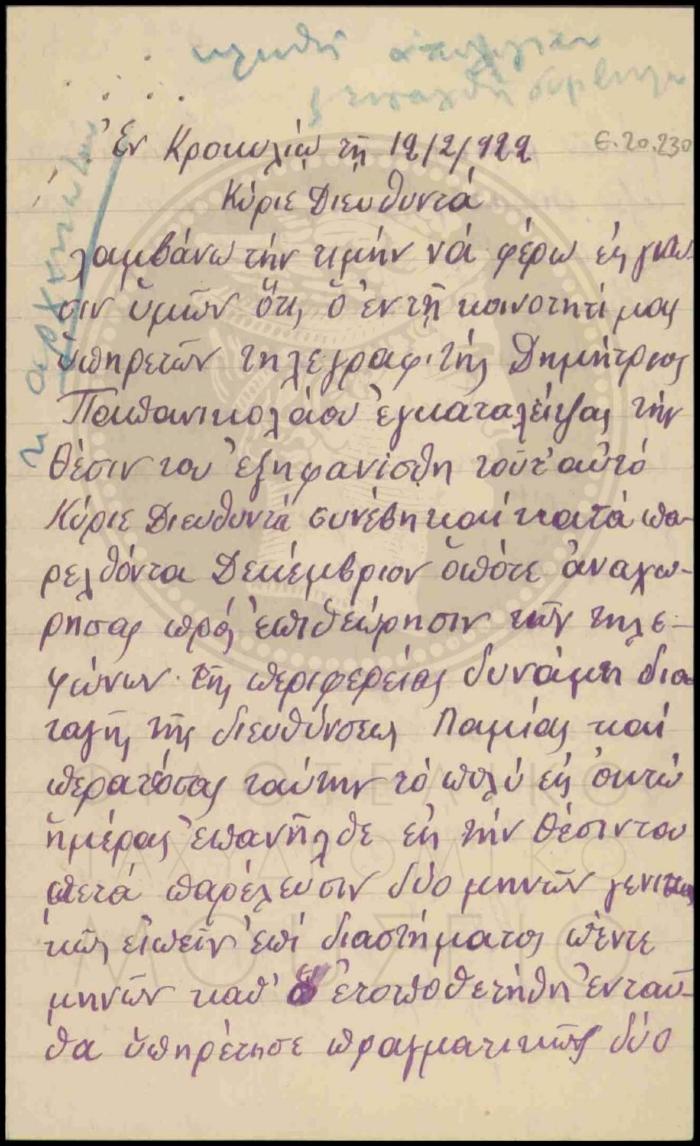 κληθῇ
Ἐν Κροκυλίῳ τῇ 12/2/922
Є.20.230
Κύριε Διευθυντά
Λαμβάνω τήν τιμήν νά φέρω εἰς γνω
σιν ὑμῶν ὅτι ὁ ἐν τῇ κοινότητί μας
ὑπηρετῶν τηλεγραφητής Δημήτριος
Παπανικολάου ἐγκαταλείψας τήν
θέσιν του ἐξηφανίσθη τοῦτ' αὐτό
Κύριε Διευθυντά συνέβη καί κατά πα-
ρελθόντα Δεκέμβριον ὁπότε ἀναχω-
ρήσας πρός ἐπιθεώρησιν τῶν τηλε-
φώνων τῆς περιφερείας δυνάμη δια
ταγῆς τῆς διευθύνσεως Λαμίας καί
περατόσας ταύτην τό πολύ εἰς ὀκτώ
ἡμέρας ἐπανῆλθε εἰς τήν θέσιν του
μετά παρέλευσιν δύο μηνῶν γενικῶς
εἰπεῖν ἐπί διαστήματος πέντε
μηνῶν καθ' ὅ ἐτοποθετήθη ἐνταῦ-
θα ὑπηρέτησε πραγματικῶς δύο
ΦΙΛΟΤΕΛΙΚΟ
ΤΑΧΥΔΡΟΜΙΚΟ
ΜΟΥΣΕΙΟ